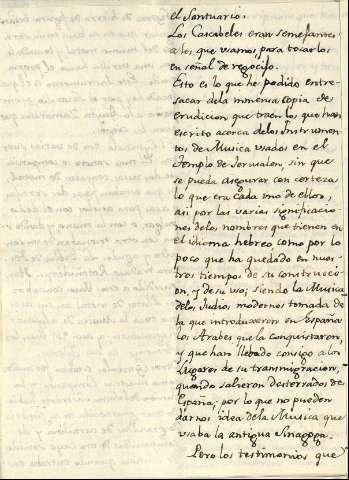 el Santuario.
Los Cascabeles eran semejantes
a los que usamos para tocarlos
en señal de regocijo.
Esto es lo que he podido entre-
sacar dela inmensa copia de
erudicion que traen los que han
escrito acerca delos Instrumen-
tos de Musica usados en el
Templo de Jerusalen, sin que
se pueda asegurar con certeza
lo que era cada uno de ellos,
asi por las varias significacio-
nes delos nombres que tienen en
el idioma hebreo, como por lo
poco que ha quedado en nues-
tros tiempos de su construcci-
on, y de su uso; siendo la Musica
delos Judios modernos tomada de
la que introduxeron en España
los Arabes que la conquistaron,
y que han llevado consigo a los
Lugares de su transmigracion,
quando salieron desterrados de
España; por lo que no pueden
darnos idea dela Musica que
usaba la antigua Sinagoga.
Pero los testimonios que